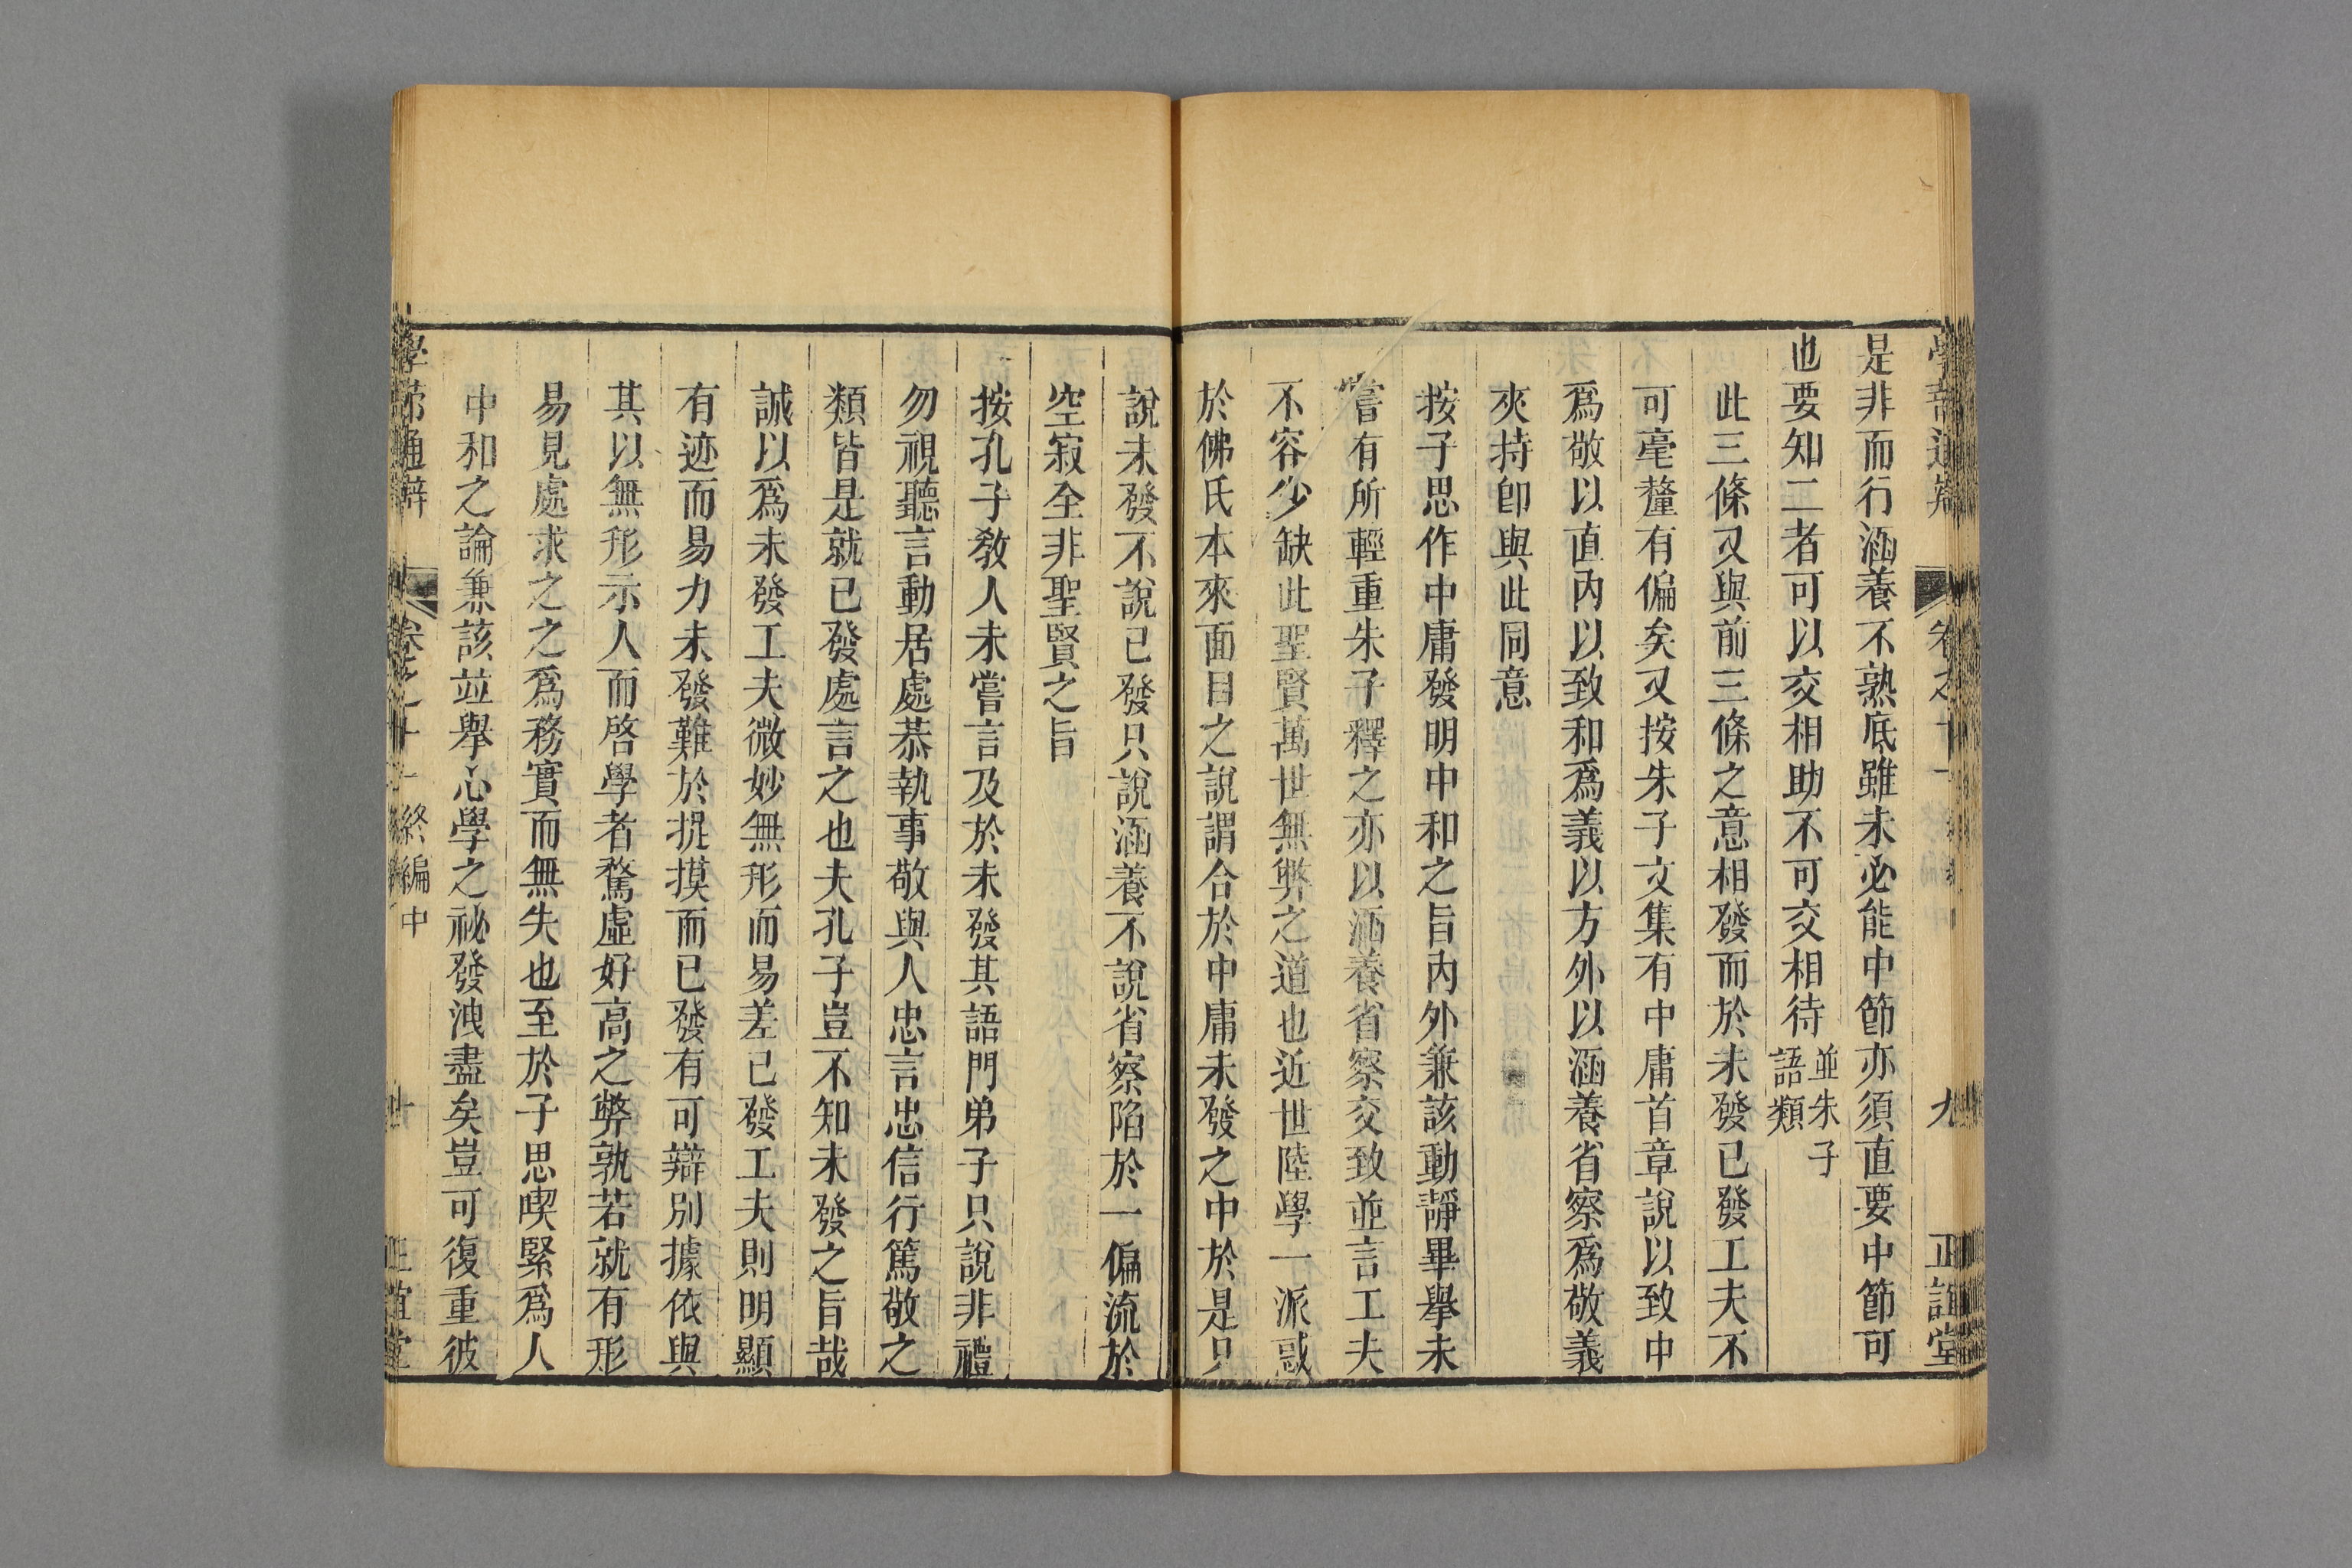 是非而行涵養不熟底雖未必能中節亦須直要中節可
也要知二者可以交相助不可交相待
並朱子
語類
此三條又與前三條之意相發而於未發已發工夫不
可毫釐有偏矣又按朱子文集有中庸首章說以致中
爲敬以直內以致和爲義以方外以涵養省察爲敬義
夾持卽與此同意
按子思作中庸發明中和之旨內外兼該動靜畢舉未
嘗有所輕重朱子釋之亦以涵養省察交致並言工夫
不容少缺此聖賢萬世無弊之道也近世陸學一派惑
於佛氏本來面目之說謂合於中庸未發之中於是只
說未發不說已發只說涵養不說省察陷於一偏流於
空寂全非聖賢之旨
按孔子教人未嘗言及於未發其語門弟子只說非禮
勿視聽言動居處恭執事敬與人忠言忠信行篤敬之
類皆是就已發處言之也夫孔子豈不知未發之旨哉
誠以爲未發工夫微妙無形而易差已發工夫則明顯
有迹而易力未發難於捉摸而已發有可辯別據依與
其以無形示人而啓學者騖虛好高之弊孰若就有形
易見處求之之爲務實而無失也至於子思喫緊爲人
中和之論兼該並舉心學之祕發洩盡矣豈可復重彼
學蔀通辯 卷之十一 終編中
正誼堂